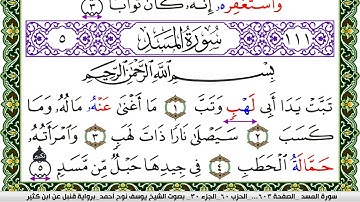 وَاسْتَغْفِرْهُ إِنَّهُۥ كَانَ تَوَّابًا ٣
١١١ سُورَةُ الْمَسَدِ ٥
بِسْمِ اللَّهِ الرَّحْمَٰنِ الرَّحِيمِ
تَبَّتْ يَدَا أَبِى لَهْبٍ وَتَبَّ ١ مَا أَغْنَىٰ عَنْهُۥ مَالُهُۥ وَمَا
كَسَبَ ٢ سَيَصْلَىٰ نَارًا ذَاتَ لَهَبٍ ٣ وَامْرَأَتُهُۥ
حَمَّالَةُ الْحَطَبِ ٤ فِى جِيدِهَا حَبْلٌ مِّن مَّسَدٍ ٥
سورة المسد _الصفحة ٦٠٣ ...._الحزب ٦٠_ الجزء ٣٠ _ بصوت الشيخ يوسف نوح أحمد _ برواية قنبل عن ابن كثير